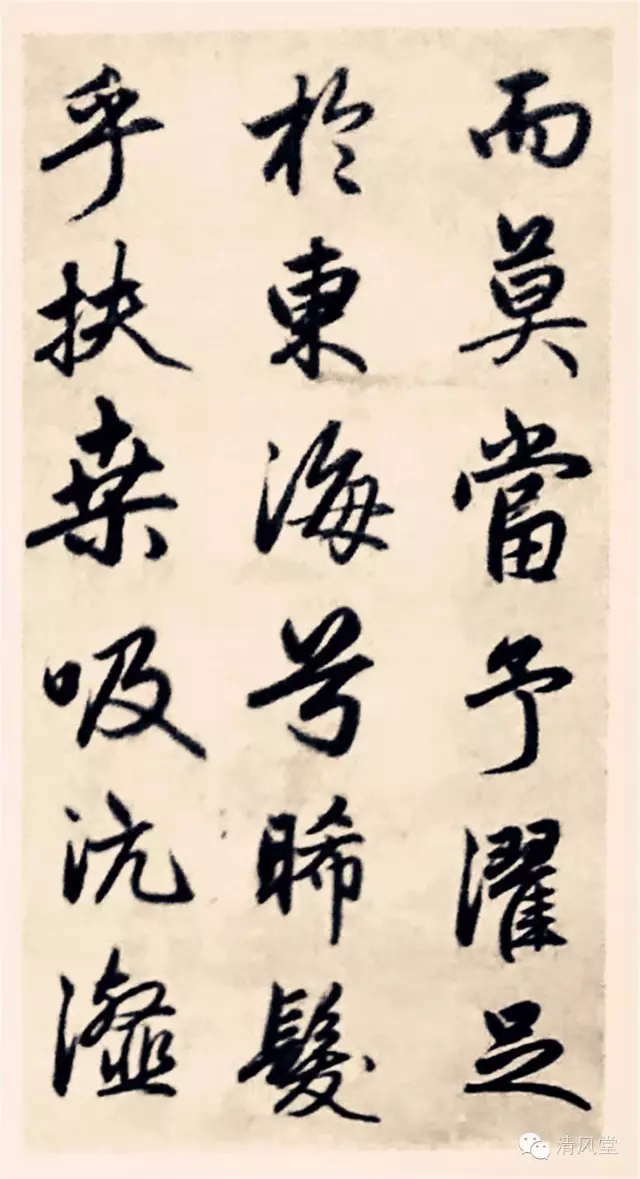 而莫當予濯足
於東海兮晞髮
乎扶桒吸沆瀣
清风堂